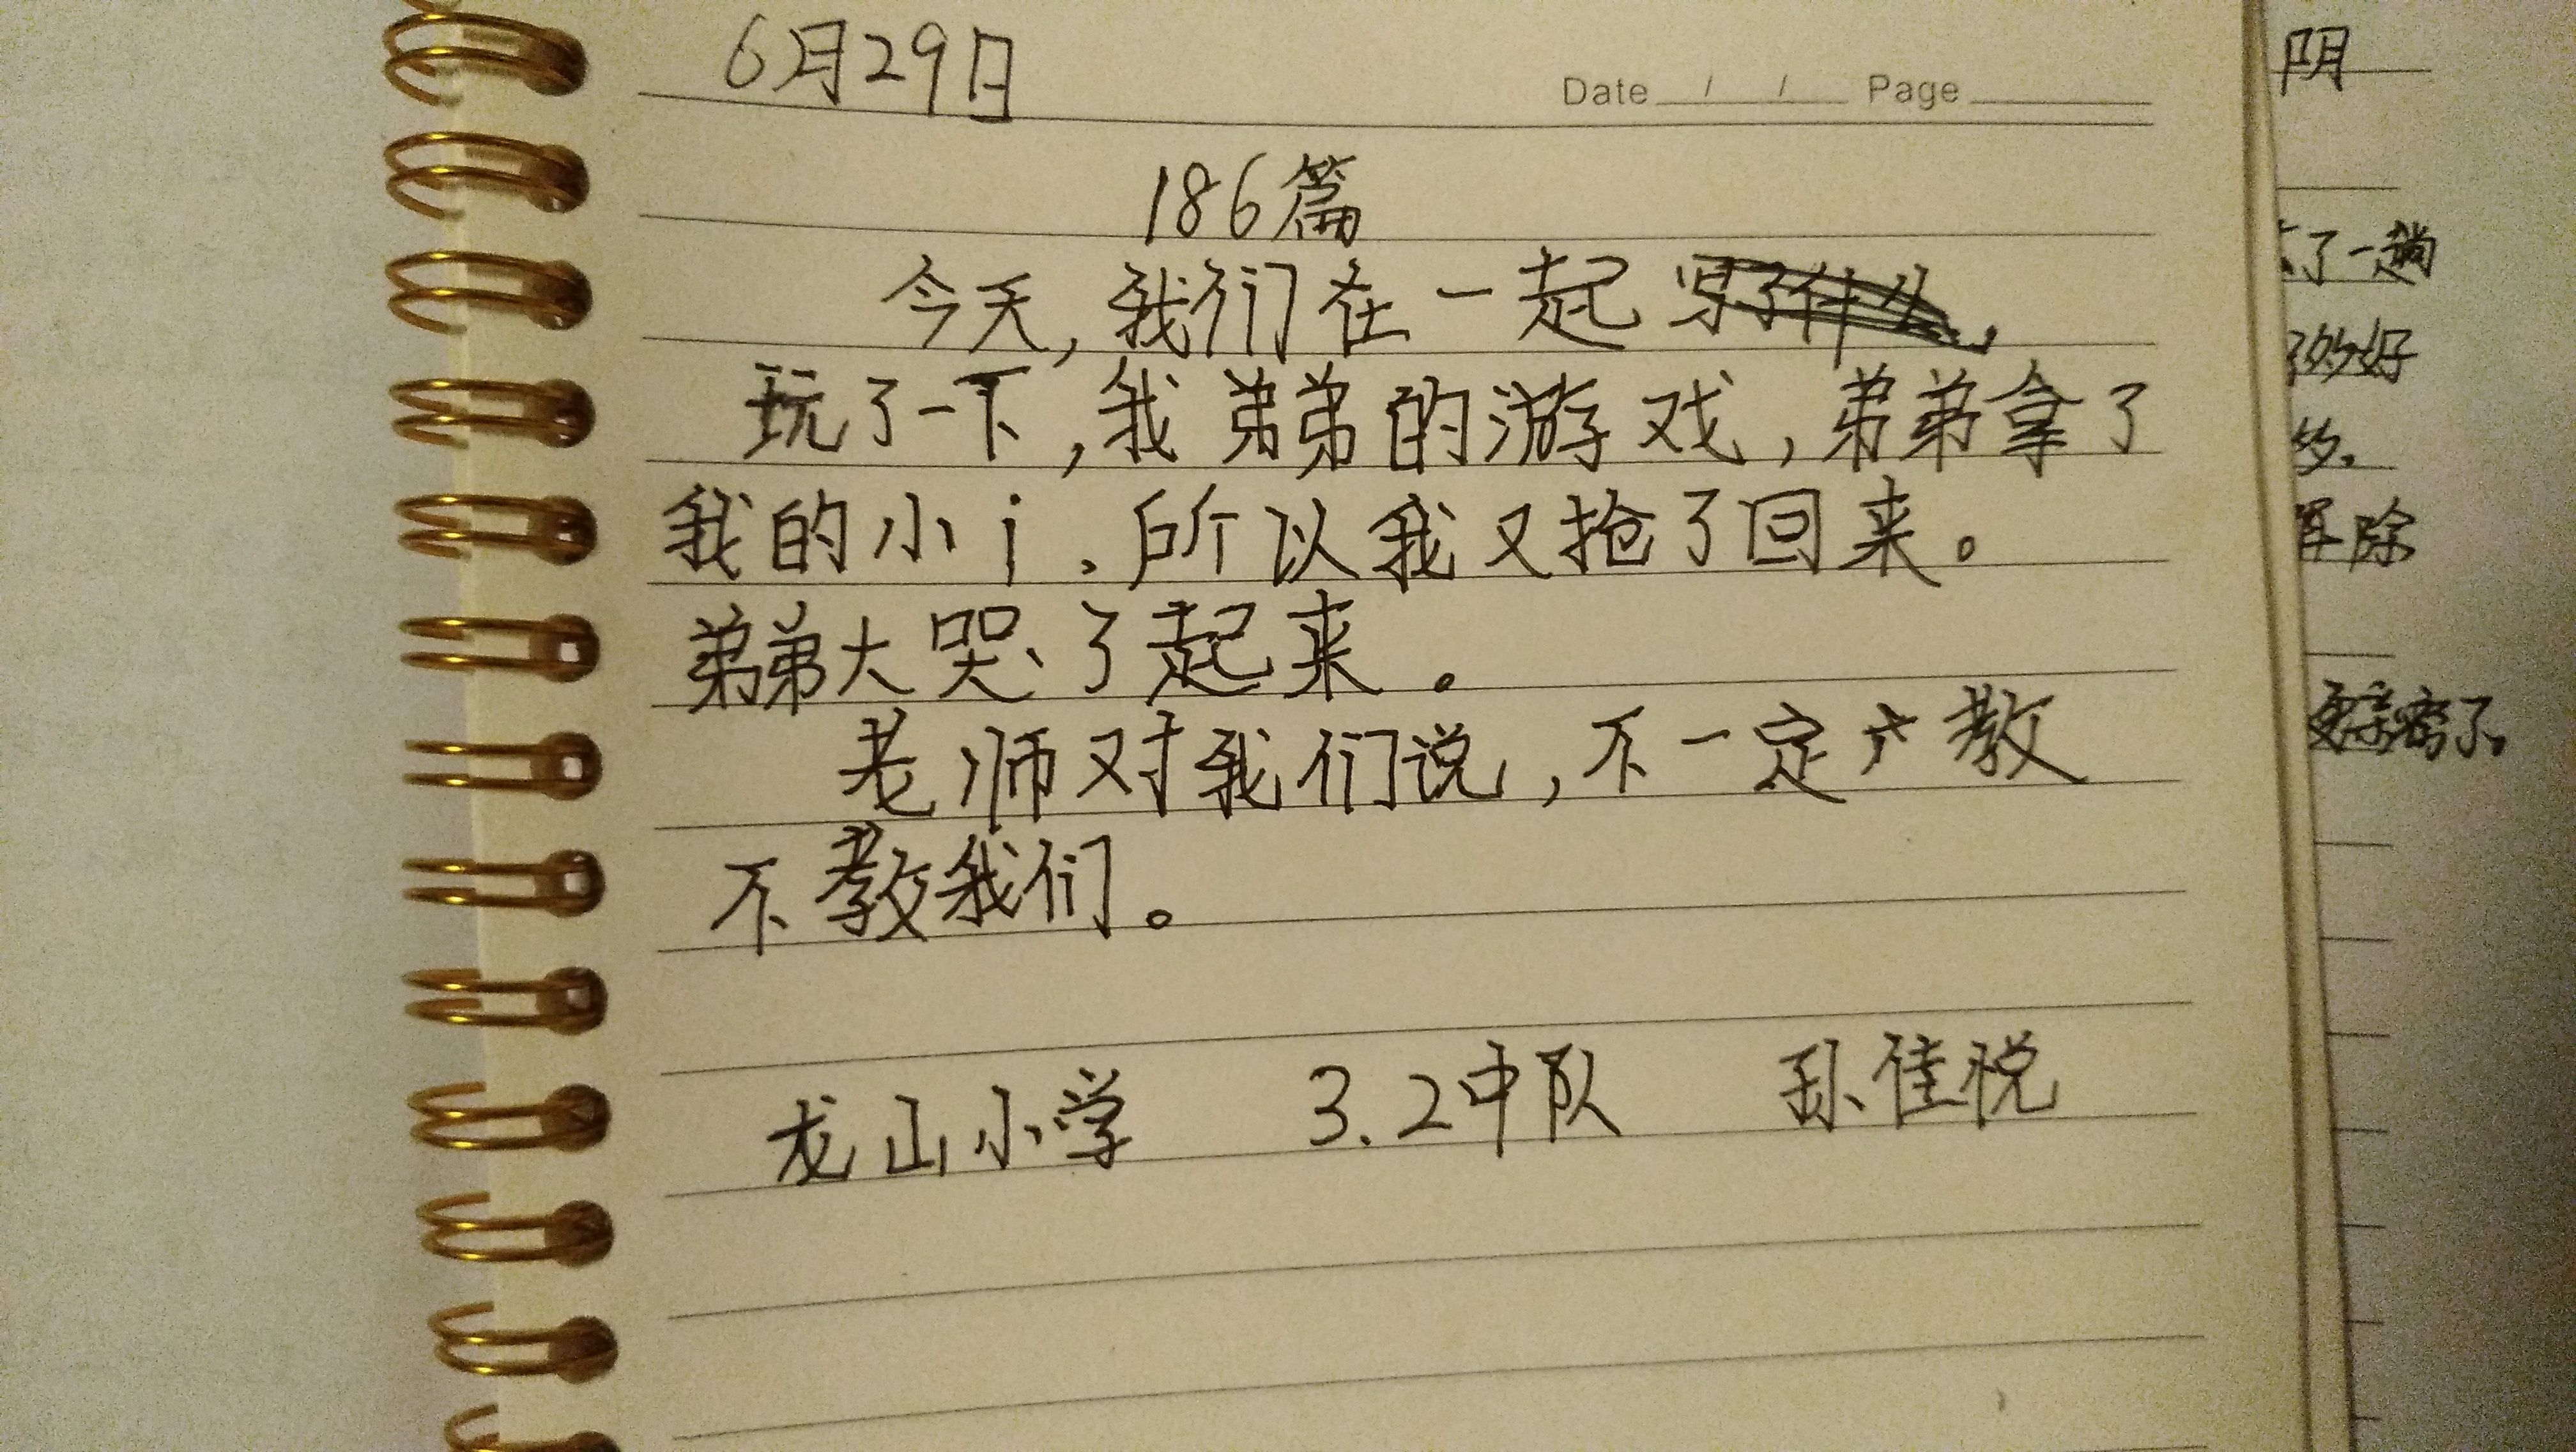 6月29日
Date / / Page
186篇
今天,我们在一起写了什么,
玩了一下,我弟弟的游戏,弟弟拿了
我的小i、所以我又抢了回来。
弟弟大哭了起来。
老师对我们说,不一定教
不教我们。
龙山小学 3.2中队 孙佳悦
阴
了一趟
的好
多。
除
了。